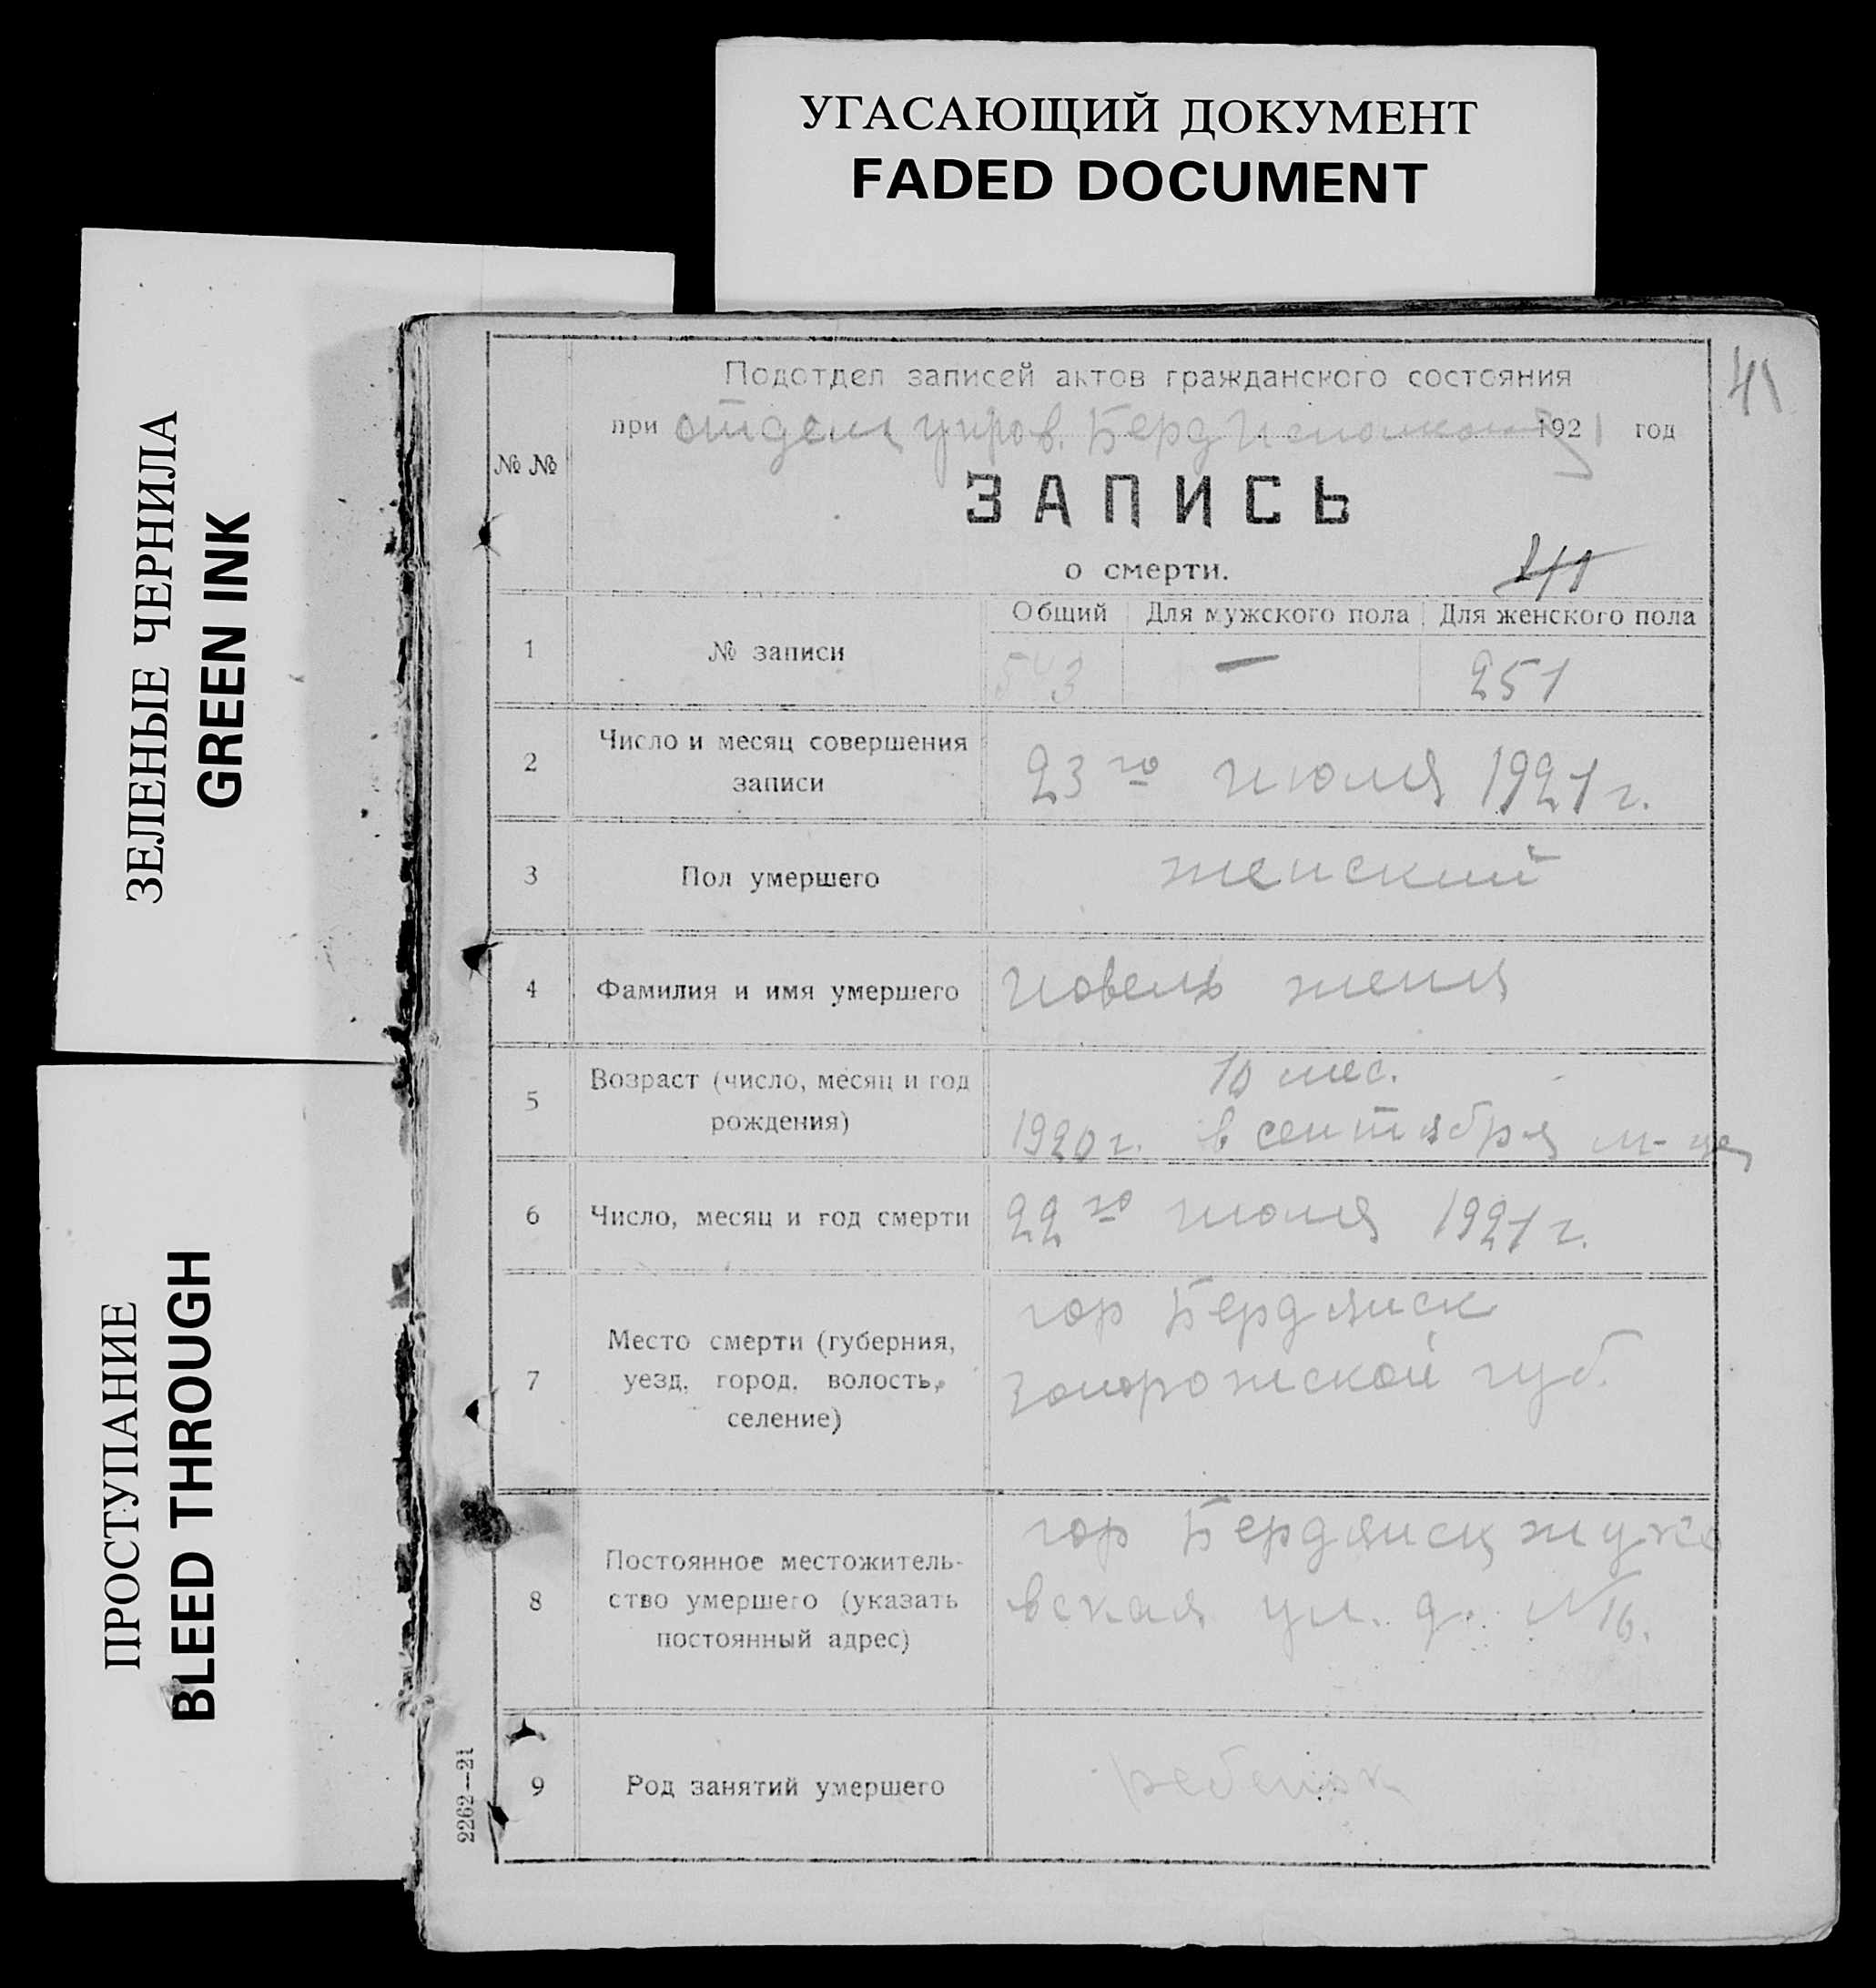 УГАСАЮЩИЙ ДОКУМЕНТ
FADED DOCUMENT
ЗЕЛЕНЫЕ ЧЕРНИЛА
GREEN INK
ПРОСТУПАНИЕ
BLEED THROUGH
41
Подотдел записей актов гражданского состояния
при отделе управ. Берд Исполкома 1921 год
№ №
ЗАПИСЬ
о смерти.
41
Общий Для мужского пола Для женского пола
1 № записи 543 — 251
2 Число и месяц совершения
записи
23 го июля 1921 г.
3 Пол умершего женский
4 Фамилия и имя умершего женя
5 Возраст (число, месяц и год
рождения)
10 мес.
1920 г. в сентября м-це
6 Число, месяц и год смерти 22 го июля 1921 г.
7 Место смерти (губерния,
уезд, город, волость,
селение)
гор Бердянск
Запорожской губ.
8 Постоянное местожитель-
ство умершего (указать
постоянный адрес)
гор Бердянск жуко
вская ул. д. № 16.
9 Род занятий умершего ребенок
2262—21